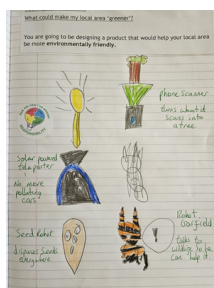 What could make my local area "greener"?
You are going to be designing a product that would help your local area
be more environmentally friendly.
phone Scanner
turns what it
scans into
a tree.
Solar powered
teleporter
No more
polluting
cars
Seed Robot
disperses Seeds
everywhere
Robot
Garfield
talks to
wildlife to
can help it